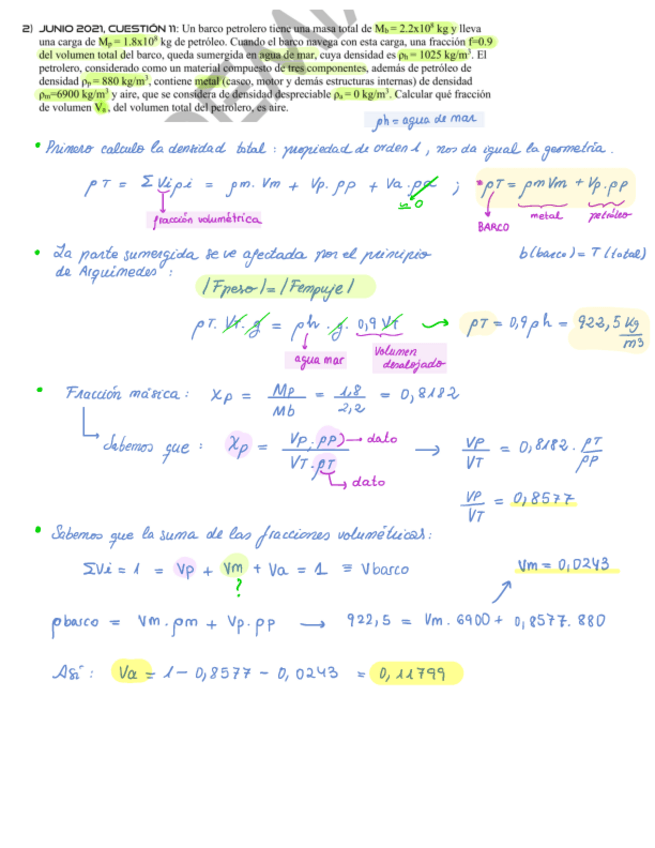 2) JUNIO 2021, CUESTIÓN 11: Un barco petrolero tiene una masa total de Mb = 2.2x10⁸ kg y lleva
una carga de Mp = 1.8x10⁸ kg de petróleo. Cuando el barco navega con esta carga, una fracción f=0.9
del volumen total del barco, queda sumergida en agua de mar, cuya densidad es ρh = 1025 kg/m³. El
petrolero, considerado como un material compuesto de tres componentes, además de petróleo de
densidad ρp = 880 kg/m³, contiene metal (casco, motor y demás estructuras internas) de densidad
ρm=6900 kg/m³ y aire, que se considera de densidad despreciable ρa = 0 kg/m³. Calcular qué fracción
de volumen Va, del volumen total del petrolero, es aire.
ρh = agua de mar
• Primero calculo la densidad total : propiedad de orden 1, nos da igual la geometría.
ρT = ΣViρi = ρm. Vm + Vp. ρp + Va. ρa ; *ρT = ρm Vm + Vp. ρp
≈ 0
fracción volumétrica
BARCO
metal
petróleo
• La parte sumergida se ve afectada por el principio
de Arquímedes :
b(barco) = T (total)
|Fpeso| = |Fempuje|
ρT. VT. g = ρh. g. 0,9 VT → ρT = 0,9 ρh = 922,5 kg/m3
agua mar
Volumen
desalojado
• Fracción másica : Xp = Mp/Mb = 1,8/2,2 = 0,8182
Sabemos que : Xp = Vp. ρp/VT. ρT → VP/VT = 0,8182. ρT/ρP
dato
dato
VP/VT = 0,8577
• Sabemos que la suma de las fracciones volumétricas :
ΣVi = 1 = Vp + Vm + Va = 1 ≡ Vbarco
?
Vm = 0,0243
ρbarco = Vm. ρm + Vp. ρp → 922,5 = Vm. 6900 + 0,8577. 880
Así : Va = 1 - 0,8577 - 0,0243 = 0,11799